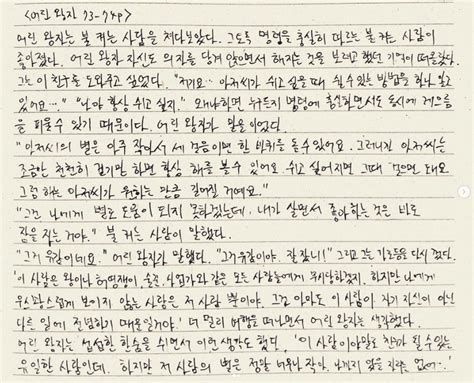 <어린 왕자 73-74p>
어린 왕자는 불 켜는 사람을 쳐다보았다. 그토록 명령을 충실히 따르는 불 켜는 사람이
좋아졌다. 어린 왕자 자신도 의자를 당겨 앉으면서 해지는 것을 보려고 했던 기억이 떠올랐다.
그는 이 친구를 도와주고 싶었다. "저기요… 아저씨가 쉬고 싶을 때 쉴 수 있는 방법을 하나 알고
있어요…" "나야 항상 쉬고 싶지." 왜냐하면 누구든지 명령에 충실하면서도 동시에 게으름
을 피울 수 있기 때문이다. 어린 왕자가 말을 이었다.
"아저씨의 별은 아주 작아서 세 걸음이면 한 바퀴를 돌 수 있어요. 그러니깐 아저씨는
조금만 천천히 걷기만 하면 항상 해를 볼 수 있어요. 쉬고 싶어지면 그때 걸으면 돼요
그럼 하루는 아저씨가 원하는 만큼 길어질 거예요."
"그건 나에게 별로 도움이 되지 못하겠는데. 내가 살면서 좋아하는 것은 바로
잠을 자는 거야." 불 켜는 사람이 말했다.
"그거 유감이네요." 어린 왕자가 말했다. "그거 유감이야. 잘 잤니!" 그리고 그는 가로등을 다시 껐다.
'이 사람은 왕이나 허영쟁이, 술꾼, 사업가와 같은 모든 사람들에게 무시당하겠지. 하지만 나에게
우스꽝스럽게 보이지 않는 사람은 저 사람 뿐이야. 그건 아마도 이 사람이 자기 자신이 아닌
다른 일에 전념하기 때문일거야.' 더 멀리 여행을 떠나면서 어린 왕자는 생각했다.
어린 왕자는 섭섭한 한숨을 쉬면서 이런 생각도 했다. '이 사람이야말로 친구가 될 수 있는
유일한 사람인데. 하지만 저 사람의 별은 정말 너무나 작아. 나까지 앉을 자리는 없어…'